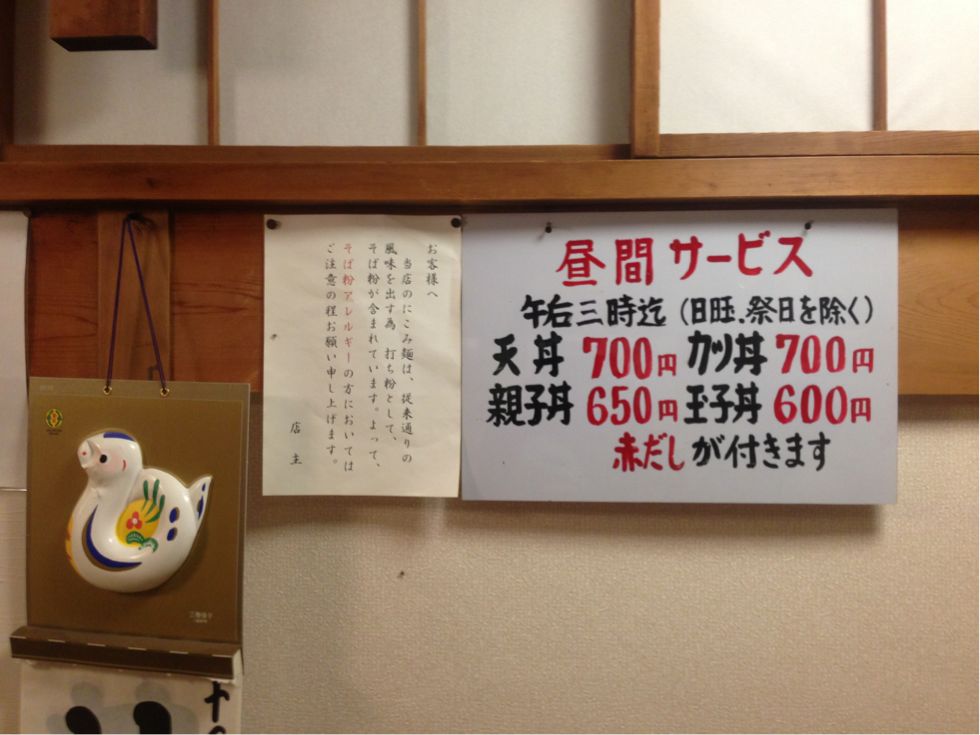 昼間サービス
午后三時迄(日旺、祭日を除く)
天丼 700円 カツ丼 700円
親子丼 650円 玉子丼 600円
赤だしが付きます
お客様へ
当店のにこみ麺は、従来通りの
風味を出す為、打ち粉として、
そば粉が含まれています。よって、
そば粉アレルギーの方においては
ご注意の程お願い申し上げます。
店 主